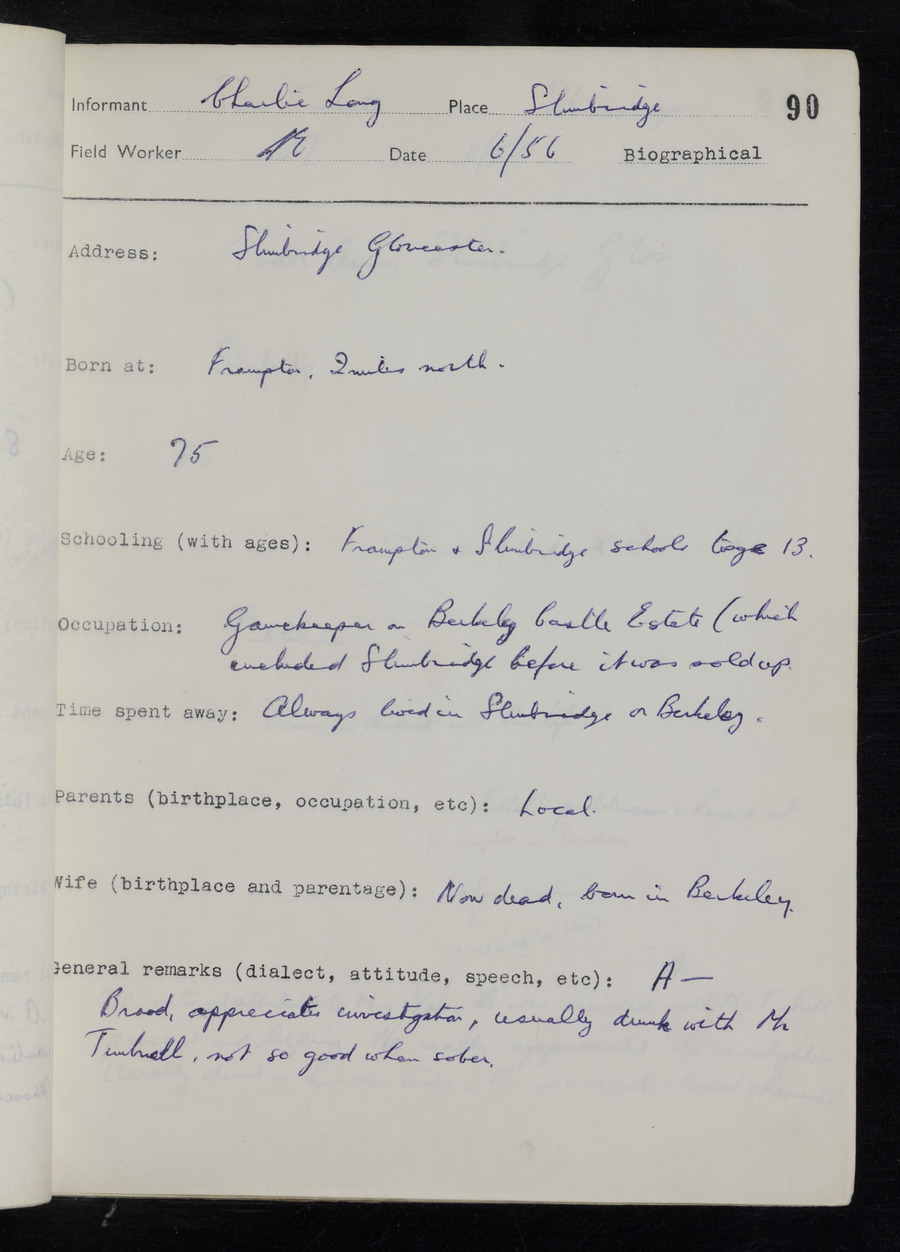 Informant Charlie Long Place Slimbridge 90
Field Worker Date 6/56 Biographical
Address: Slimbridge Gloucester.
Born at: Frampton, 2 miles north.
Age: 75
Schooling (with ages): Frampton & Slimbridge schools to age 13.
Occupation: Gamekeeper on Berkeley Castle Estate (which
included Slimbridge before it was sold up.
Time spent away: Always lived in Slimbridge or Berkeley.
Parents (birthplace, occupation, etc): Local.
Wife (birthplace and parentage): Now dead, born in Berkeley.
General remarks (dialect, attitude, speech, etc): A—
Broad, appreciates investigation, usually drunk with Mr
not so good when sober.